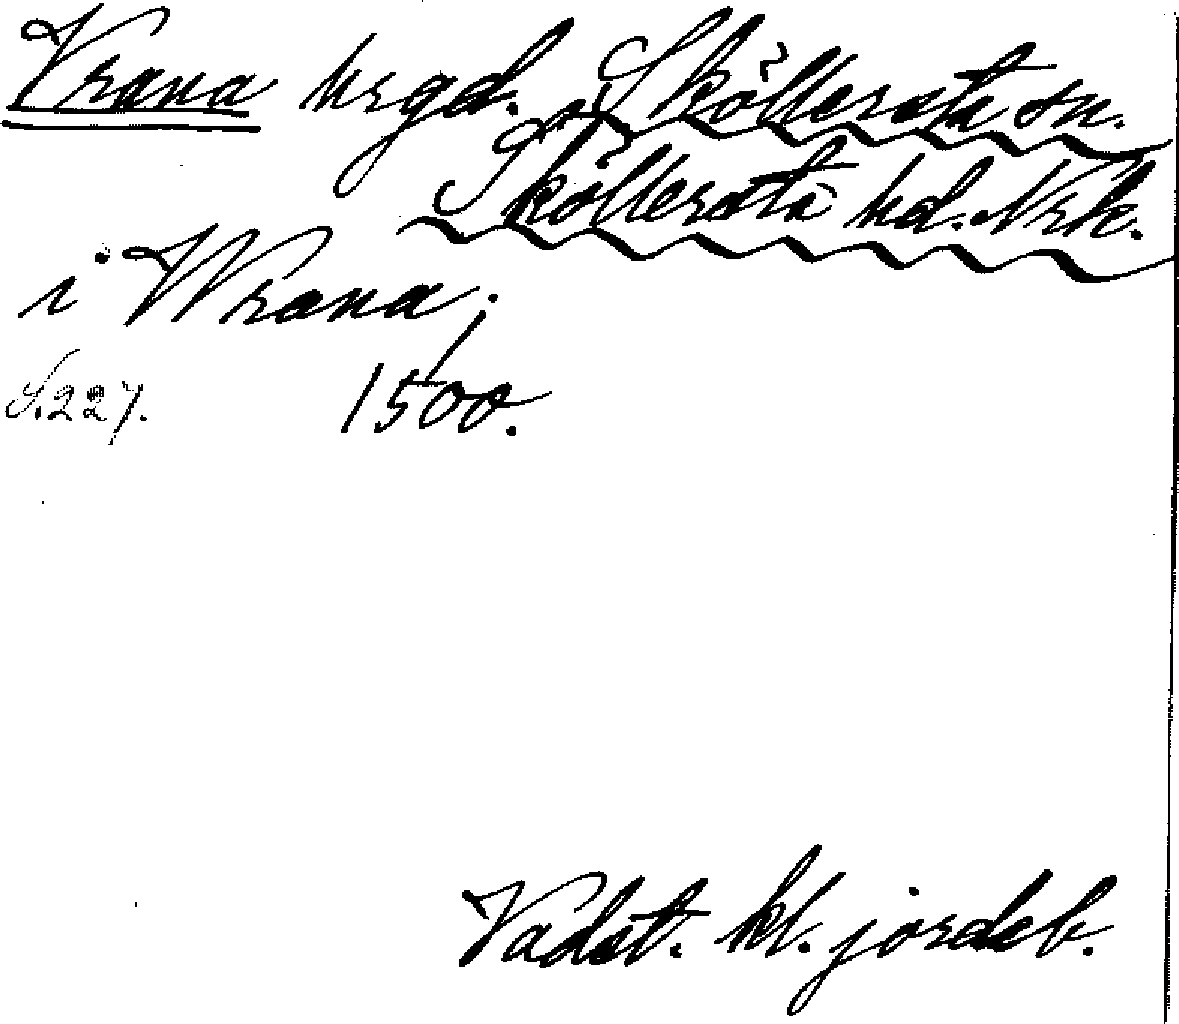 Vrana hrgd. Sköllersta sn.
Sköllersta hd. Nrk.
i Wrana;
S. 227. 1500.
Vadst. kl. jordeb.